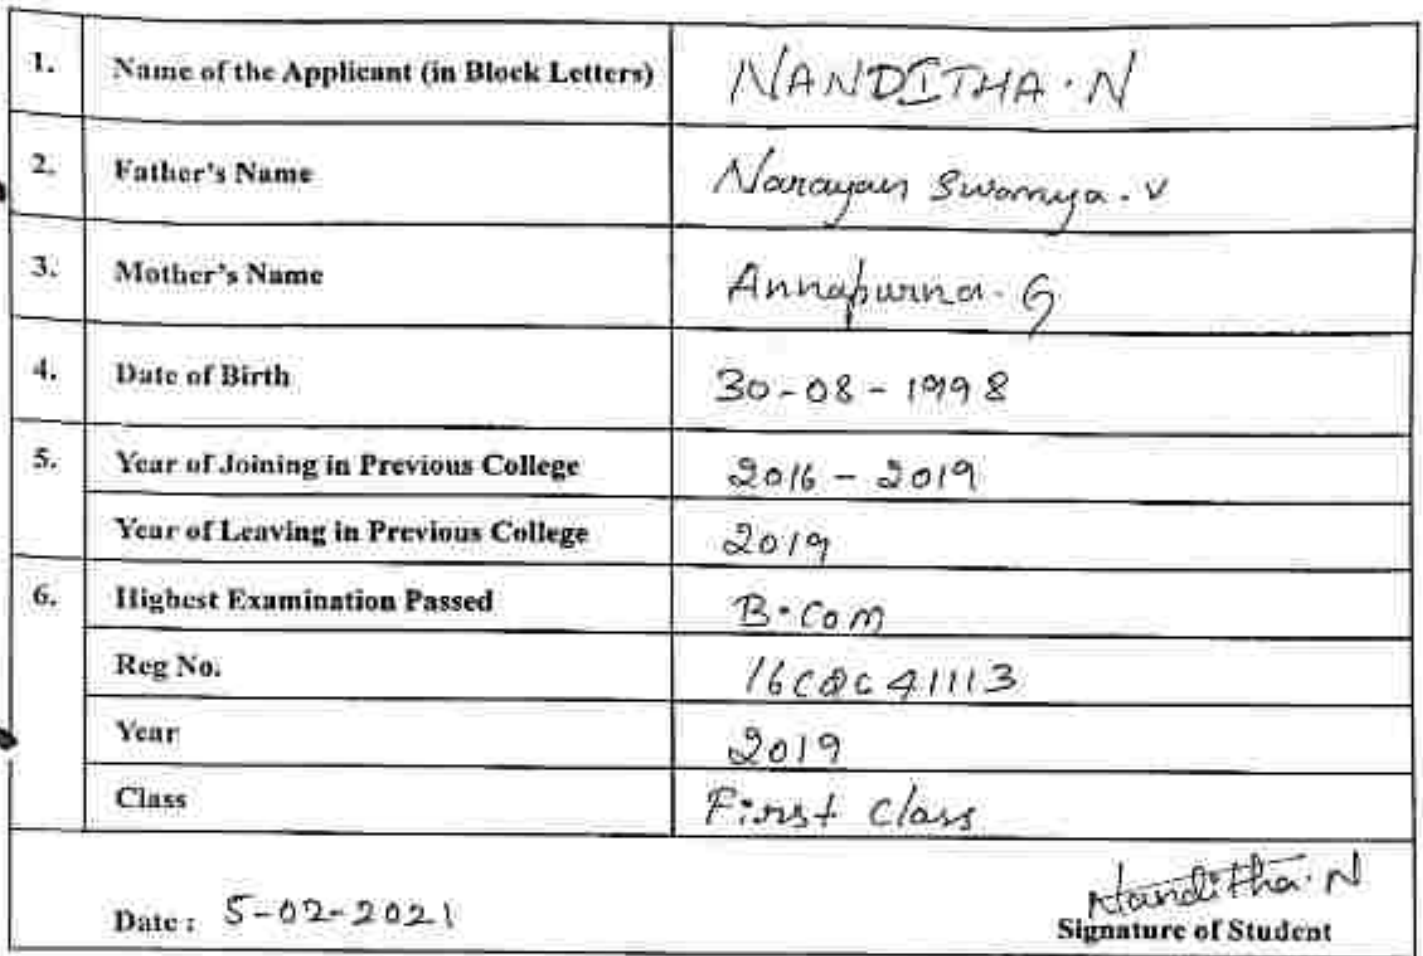 1. Name of the Applicant (in Block Letters) NANDITHA. N
2. Father's Name Narayan Swamya. V
3. Mother's Name Annapurna. G
4. Date of Birth 30-08-1998
5. Year of Joining in Previous College 2016 - 2019
Year of Leaving in Previous College 2019
6. Highest Examination Passed B.Com
Reg No. 16CQC41113
Year 2019
Class First Class
Date: 5-02-2021 Nanditha. N
Signature of Student